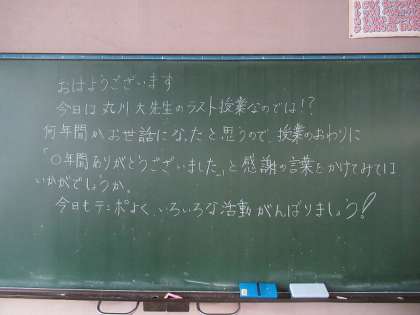 おはようございます
今日は丸川大先生のラスト授業なのでは!?
何年間かお世話になったと思うので、授業のおわりに
「○年間ありがとうございました。」と感謝の言葉をかけてみては
いかがでしょうか。
今日もテンポよく、いろいろな活動がんばりましょう!